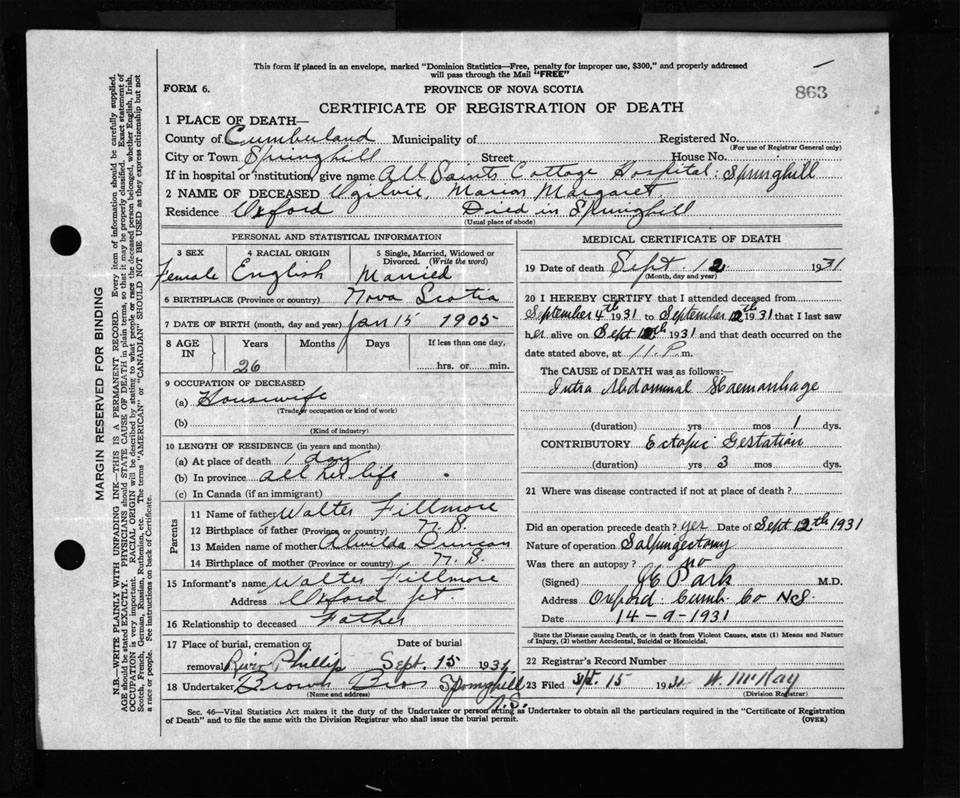 This form if placed in an envelope, marked "Dominion Statistics—Free, penalty for improper use, $300," and properly addressed
will pass through the Mail "FREE"
FORM 6.
PROVINCE OF NOVA SCOTIA
863
CERTIFICATE OF REGISTRATION OF DEATH
1 PLACE OF DEATH—
County of Cumberland Municipality of Registered No.
(For use of Registrar General only)
City or Town Springhill Street House No.
If in hospital or institution, give name All Saints Cottage Hospital: Springhill
2 NAME OF DECEASED Ogilvie, Marion Margaret
Residence Oxford Died in Springhill
(Usual place of abode)
PERSONAL AND STATISTICAL INFORMATION
3 SEX
Female
4 RACIAL ORIGIN
English
5 Single, Married, Widowed or
Divorced. (Write the word)
Married
6 BIRTHPLACE (Province or country) Nova Scotia
7 DATE OF BIRTH (month, day and year) Jan 15 1905
8 AGE
IN
Years
26
Months
Days
If less than one day,
hrs. or min.
9 OCCUPATION OF DECEASED
(a) Housewife
(Trade or occupation or kind of work)
(b)
(Kind of industry)
10 LENGTH OF RESIDENCE (in years and months)
(a) At place of death 1 day
(b) In province all her life
(c) In Canada (if an immigrant)
Parents
11 Name of father Walter Fillmore
12 Birthplace of father (Province or country) N. S.
13 Maiden name of mother Alwilda Duncan
14 Birthplace of mother (Province or country) N. S.
15 Informant's name Walter Fillmore
Address Oxford Jct.
16 Relationship to deceased Father
17 Place of burial, cremation or Date of burial
removal River Phillip Sept. 15 1931
18 Undertaker Brown Bros Springhill
(Name and address) N.S.
MEDICAL CERTIFICATE OF DEATH
19 Date of death Sept. 12 1931
(Month, day and year)
20 I HEREBY CERTIFY that I attended deceased from
September 4th 1931 to September 12th 1931 that I last saw
her alive on Sept 12th 1931 and that death occurred on the
date stated above, at 11. P. m.
The CAUSE of DEATH was as follows:—
Intra Abdominal Haemorrhage
(duration) yrs mos 1 dys.
CONTRIBUTORY Ectopic Gestation
(duration) yrs 3 mos dys.
21 Where was disease contracted if not at place of death?
Did an operation precede death? yes Date of Sept 12th 1931
Nature of operation Salpingectomy
Was there an autopsy? no
(Signed) Park M.D.
Address Oxford. Cumb. Co N.S.
Date 14-9-1931
State the Disease causing Death, or in death from Violent Causes, state (1) Means and Nature
of Injury, (2) whether Accidental, Suicidal or Homicidal.
22 Registrar's Record Number
23 Filed Sept. 15 1931 W. McKay
(Division Registrar)
Sec. 46—Vital Statistics Act makes it the duty of the Undertaker or person acting as Undertaker to obtain all the particulars required in the "Certificate of Registration
of Death" and to file the same with the Division Registrar who shall issue the burial permit.
(OVER)
MARGIN RESERVED FOR BINDING
N.B.—WRITE PLAINLY WITH UNFADING INK—THIS IS A PERMANENT RECORD. Every item of information should be carefully supplied.
AGE should be stated EXACTLY. PHYSICIANS should STATE CAUSE OF DEATH in plain terms, so that it may be properly classified. Exact statement of
OCCUPATION is very important. RACIAL ORIGIN will be described by stating to what people or race the deceased person belonged, whether English, Irish,
Scotch, French, German, Russian, Ruthenian, etc. The terms "AMERICAN" or "CANADIAN" SHOULD NOT BE USED as they express citizenship but not
a race or people. See instructions on back of Certificate.